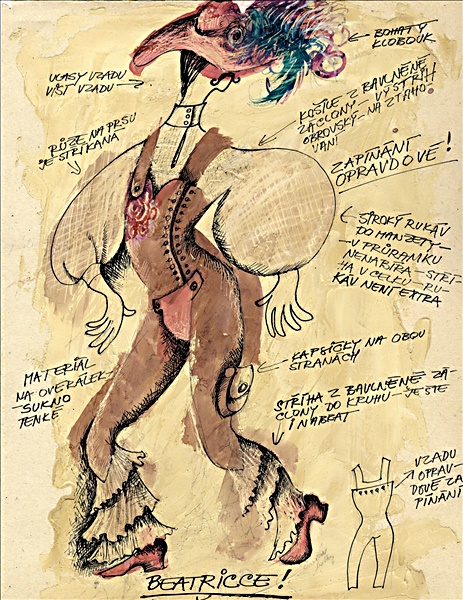 BOHATÝ
KLOBOUK
VLASY VZADU
VÍST VZADU
KOŠILE Z BAVLNĚNÉ
ZÁCLONY - VÝSTŘIH
OBROVSKÝ - NA ZTAHO-
VÁNÍ
RŮŽE NA PRSU
JE STŘÍKANÁ
ZAPÍNÁNÍ
OPRAVDOVÉ!
ŠIROKÝ RUKÁV
DO MANŽETY
- V PRŮRAMKU
NENABÍRA - STŘÍ-
HÁ V CELKU - RU-
KÁV NENÍ EXTRA
KAPSIČKY NA OBOU
STRANÁCH
MATERIÁL
NA OVERÁLEK -
SUKNO
TENKÉ
STŘIHÁ Z BAVLNĚNÉ ZÁ-
CLONY DO KRUHU - JEŠTĚ
I NABRAT
VZADU
OPRAV-
DOVÉ ZA-
PÍNÁNÍ
BEATRICCE!